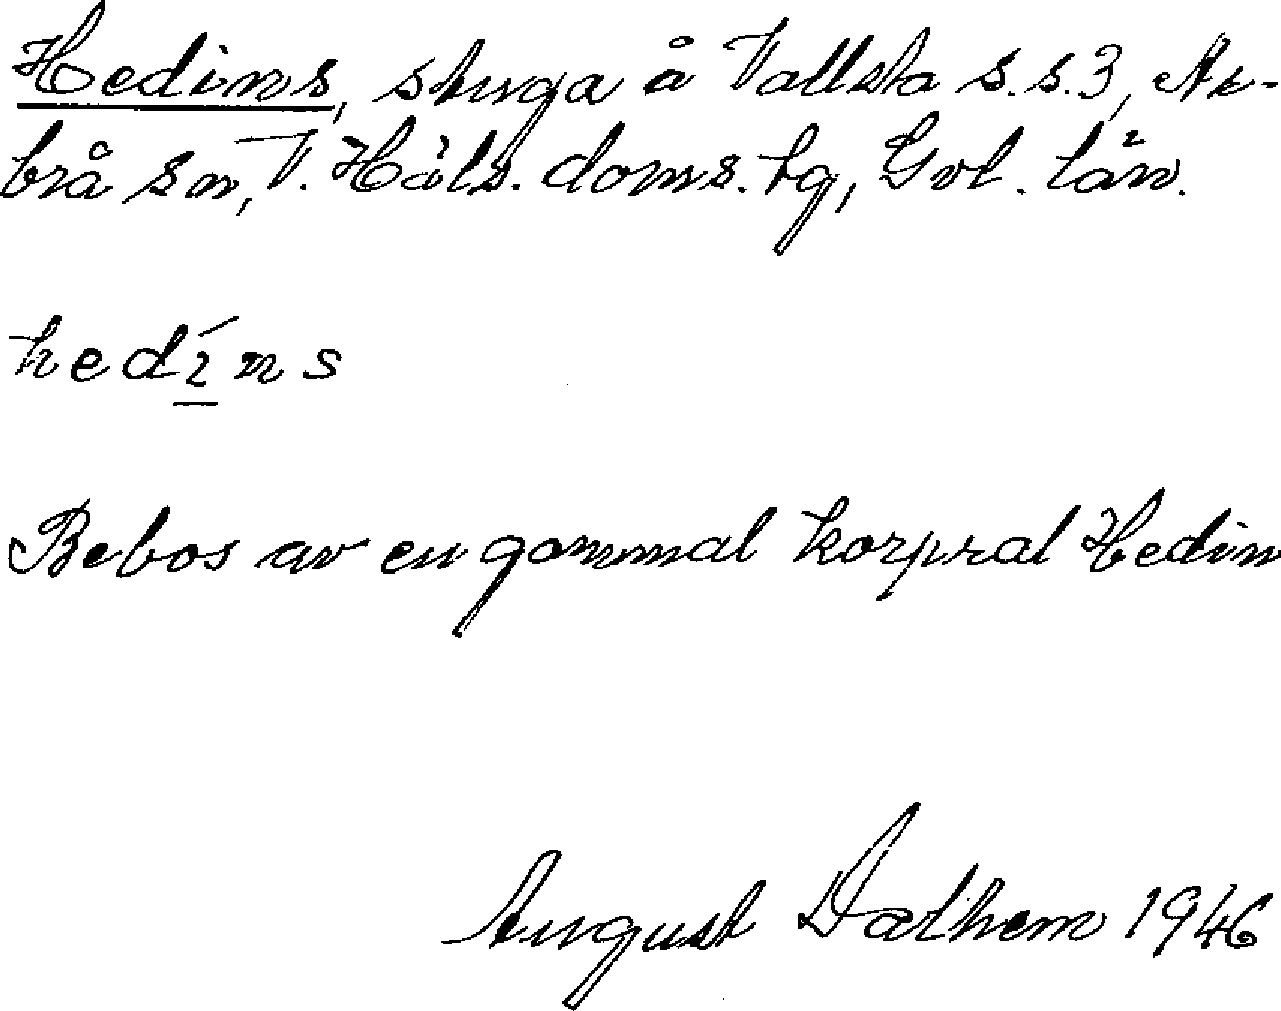 Hedins, stuga å Vallsta s.s.3, Ar-
brå sn, V. Häls. doms. tg, Gvl. län.
hedíns
Bebos av en gammal korpral Hedin
August Dathem 1946